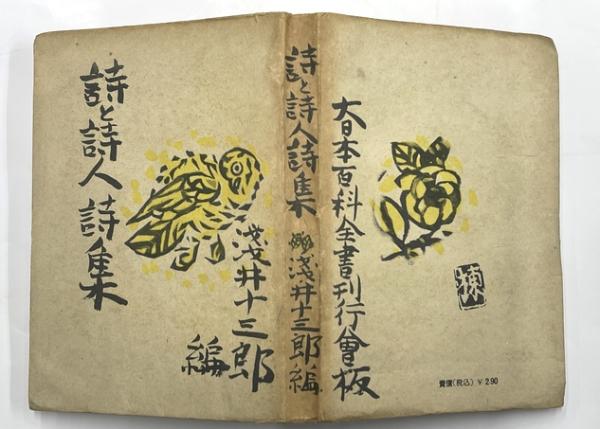 詩と詩人詩集
淺井十三郎
編
詩と詩人詩集 淺井十三郎編
大日本百科全書刊行會板
棟
賣價(税込)￥290